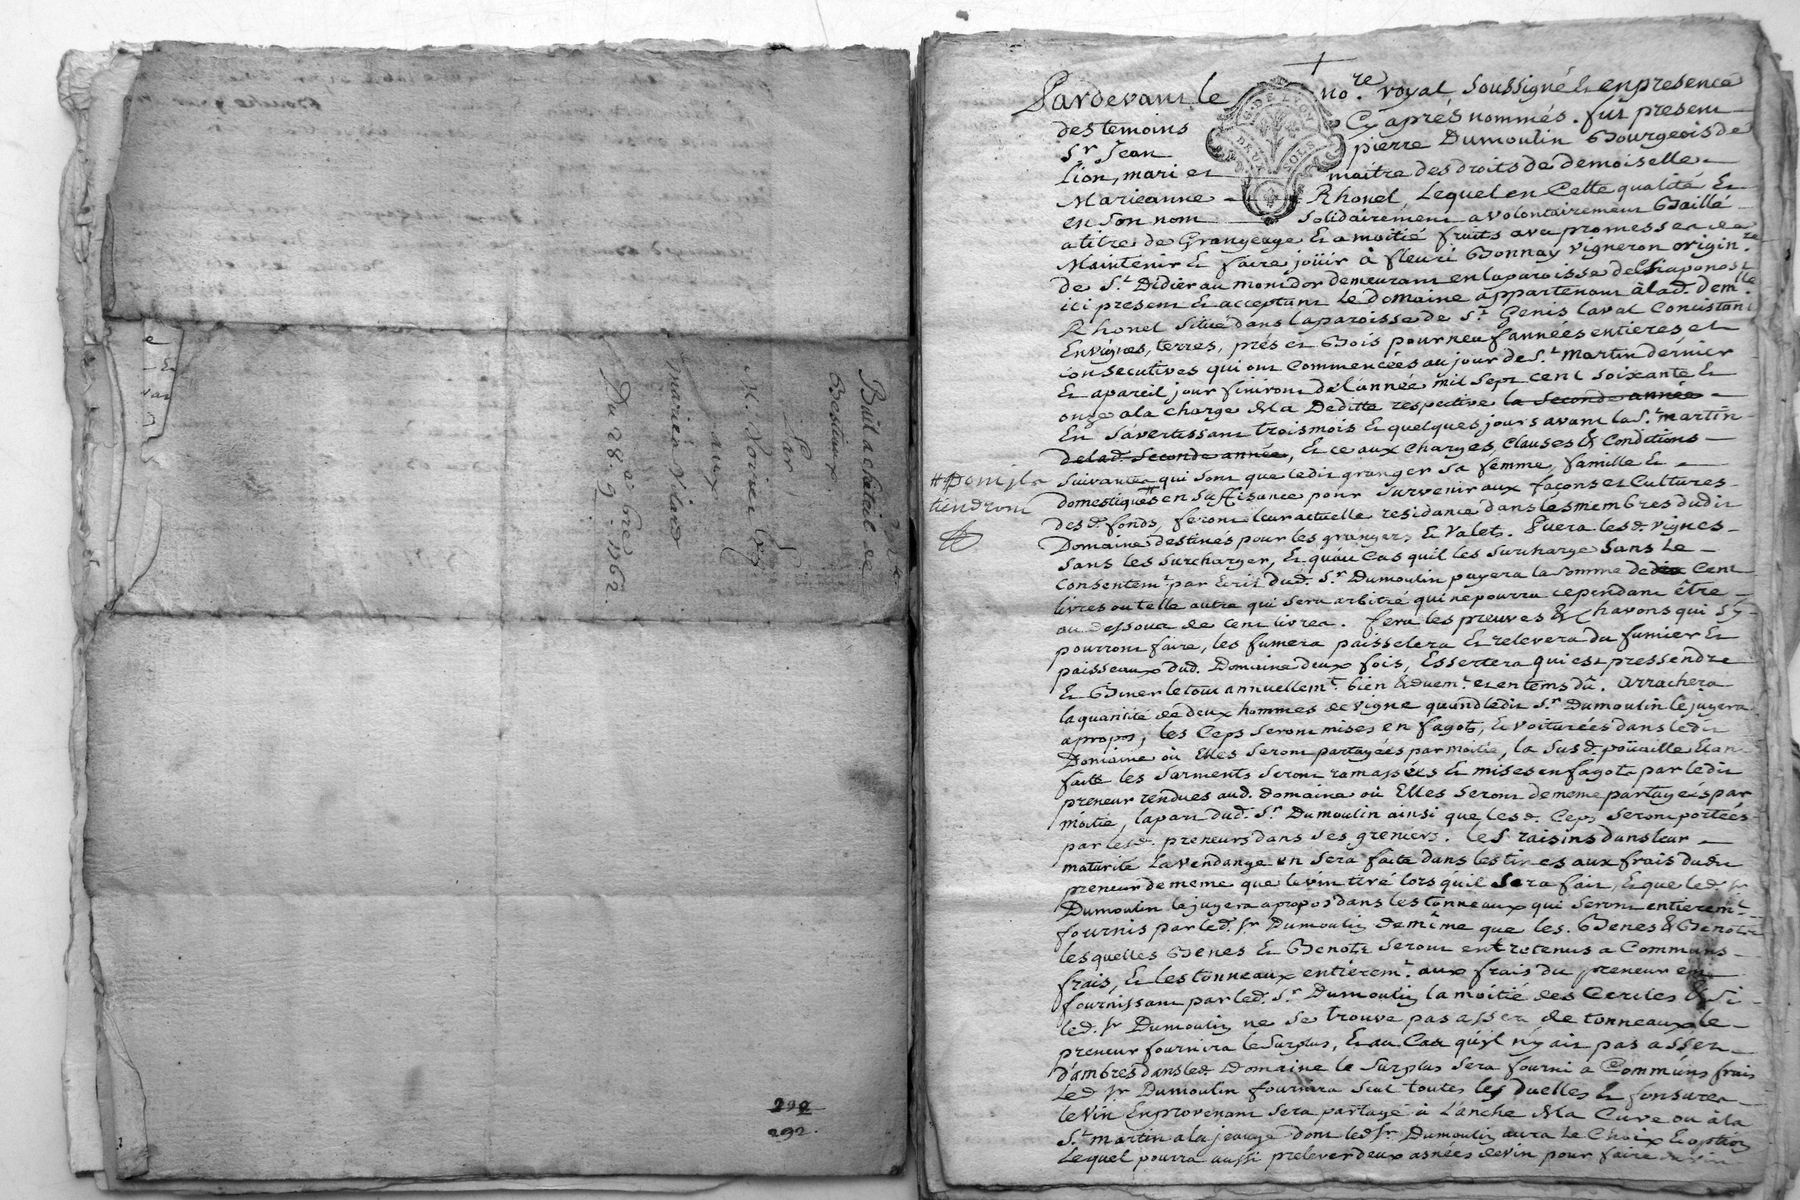 292
Bail a chatail de
Bestiaux
Par
M.
aux
mariés Vilard
Du 28. 9.bre 1762.
299
292.
Pardevant le no.re royal soussigné et en presence
des temoins Cy après nommés. fut present
Sr Jean pierre Dumoulin Bourgeois de
Lion, mari et maitre des droits de demoiselle
Marieanne Rhonel, Lequel en Cette qualité et
en son nom solidairement a volontairement Baillé
a titre de Grangeage et a moitié fruits avec promesse de
Maintenir et faire joüir à fleuri Bonnay vigneron origin.re
de St Didier au mont dor demeurant en la paroisse de Chaponost
ici present et acceptant Le domaine appartenant à lad. dem.lle
Rhonel Situé dans la paroisse de St Genis laval Concistant
En vignes, terres, prés et Bois pour neuf années entieres et
consecutives qui ont Commencées au jour de St martin dernier
et a pareil jour finiront de l'année mil sept cent soixante et
onze a la charge de la Deditte respective la Seconde année
En s'avertissant trois mois et quelques jours avant la St martin
de lad. Seconde année, et ce aux Charges, Clauses & Conditions
suivantes qui sont que ledit granger sa femme, famille et
tiendront
domestiques en suffisance pour survenir aux façons et Cultures
des d. fonds, feront leur actuelle residance dans les membres dudit
Domaine destines pour les grangers et Valets. Puera les d. vignes
sans les surcharger, et qu'au Cas quil les surcharge sans Le
consentem.t par Ecrit dud. Sr Dumoulin payera la somme de Cent
livres ou telle autre qui sera arbitré qui ne pourra cependant être
au dessous de cent livres. fera les preuves & Chavons qui s'y
pourront faire, les fumera paisselera et relevera du fumier et
paisseaux dud. Domaine deux fois, Essertera qui est pressendre
et Biner le tout annuellem.t bien & duem.t et en tems dû. arrachera
la quantité de deux hommes de vigne quand ledit Sr Dumoulin le jugera
apropos, les Ceps seront mises en fagots, et voiturées dans ledit
Domaine où Elles seront partagées par moitié, la susd. poüaille Etant
faite les sarments seront ramassées et mises en fagots par ledit
preneur rendues aud. Domaine où Elles seront de meme partagées par
moitié, la part dud. Sr Dumoulin ainsi que les d. Ceps seront portées
par lesd. preneurs dans ses greniers. les raisins dans leur
maturité La vendange en sera faite dans les tines aux frais dudit
preneur de meme que le vin tiré lors qu'il sera fait, et que led. Sr
Dumoulin le jugera apropos dans les tonneaux qui seront entierem.t
fournis par led. Sr Dumoulin de même que les Benes & Benots
lesquelles Benes et Benots seront entretenus a Communs
frais, et les tonneaux entierem.t aux frais du preneur en
fournissant par led. Sr Dumoulin la moitié des Cercles & si
led. Sr Dumoulin ne se trouve pas assez de tonneaux le
preneur fournira le surplus, et au Cas qu'il n'y ait pas assez
d'ambres dans led. Domaine le surplus sera fourni à Communs frais
Led. Sr Dumoulin fournira seul toutes les duelles et fonsures
le vin En provenant sera partagé à L'anche de la Cuve ou à la
St martin a la jeauge dont led. Sr Dumoulin aura Le Choix et option
Lequel pourra aussi prelever deux asnées de vin pour faire
G. DE LYON
DEUX SOLS